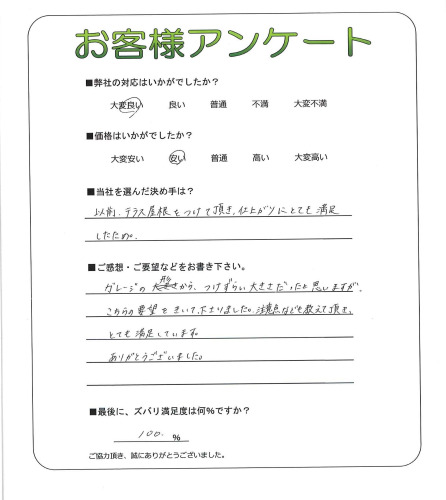 お客様アンケート
■弊社の対応はいかがでしたか？
大変良い 良い 普通 不満 大変不満
■価格はいかがでしたか？
大変安い 安い 普通 高い 大変高い
■当社を選んだ決め手は？
以前、テラス屋根をつけて頂き、仕上がりにとても満足
したため。
■ご感想・ご要望などをお書き下さい。
ガレージの 形 から、つけずらい大きさだったと思いますが、
こちらの要望をきいて下さりました。注意点なども教えて頂き、
とても満足しています。
ありがとうございました。
■最後に、ズバリ満足度は何%ですか？
100. %
ご協力頂き、誠にありがとうございました。